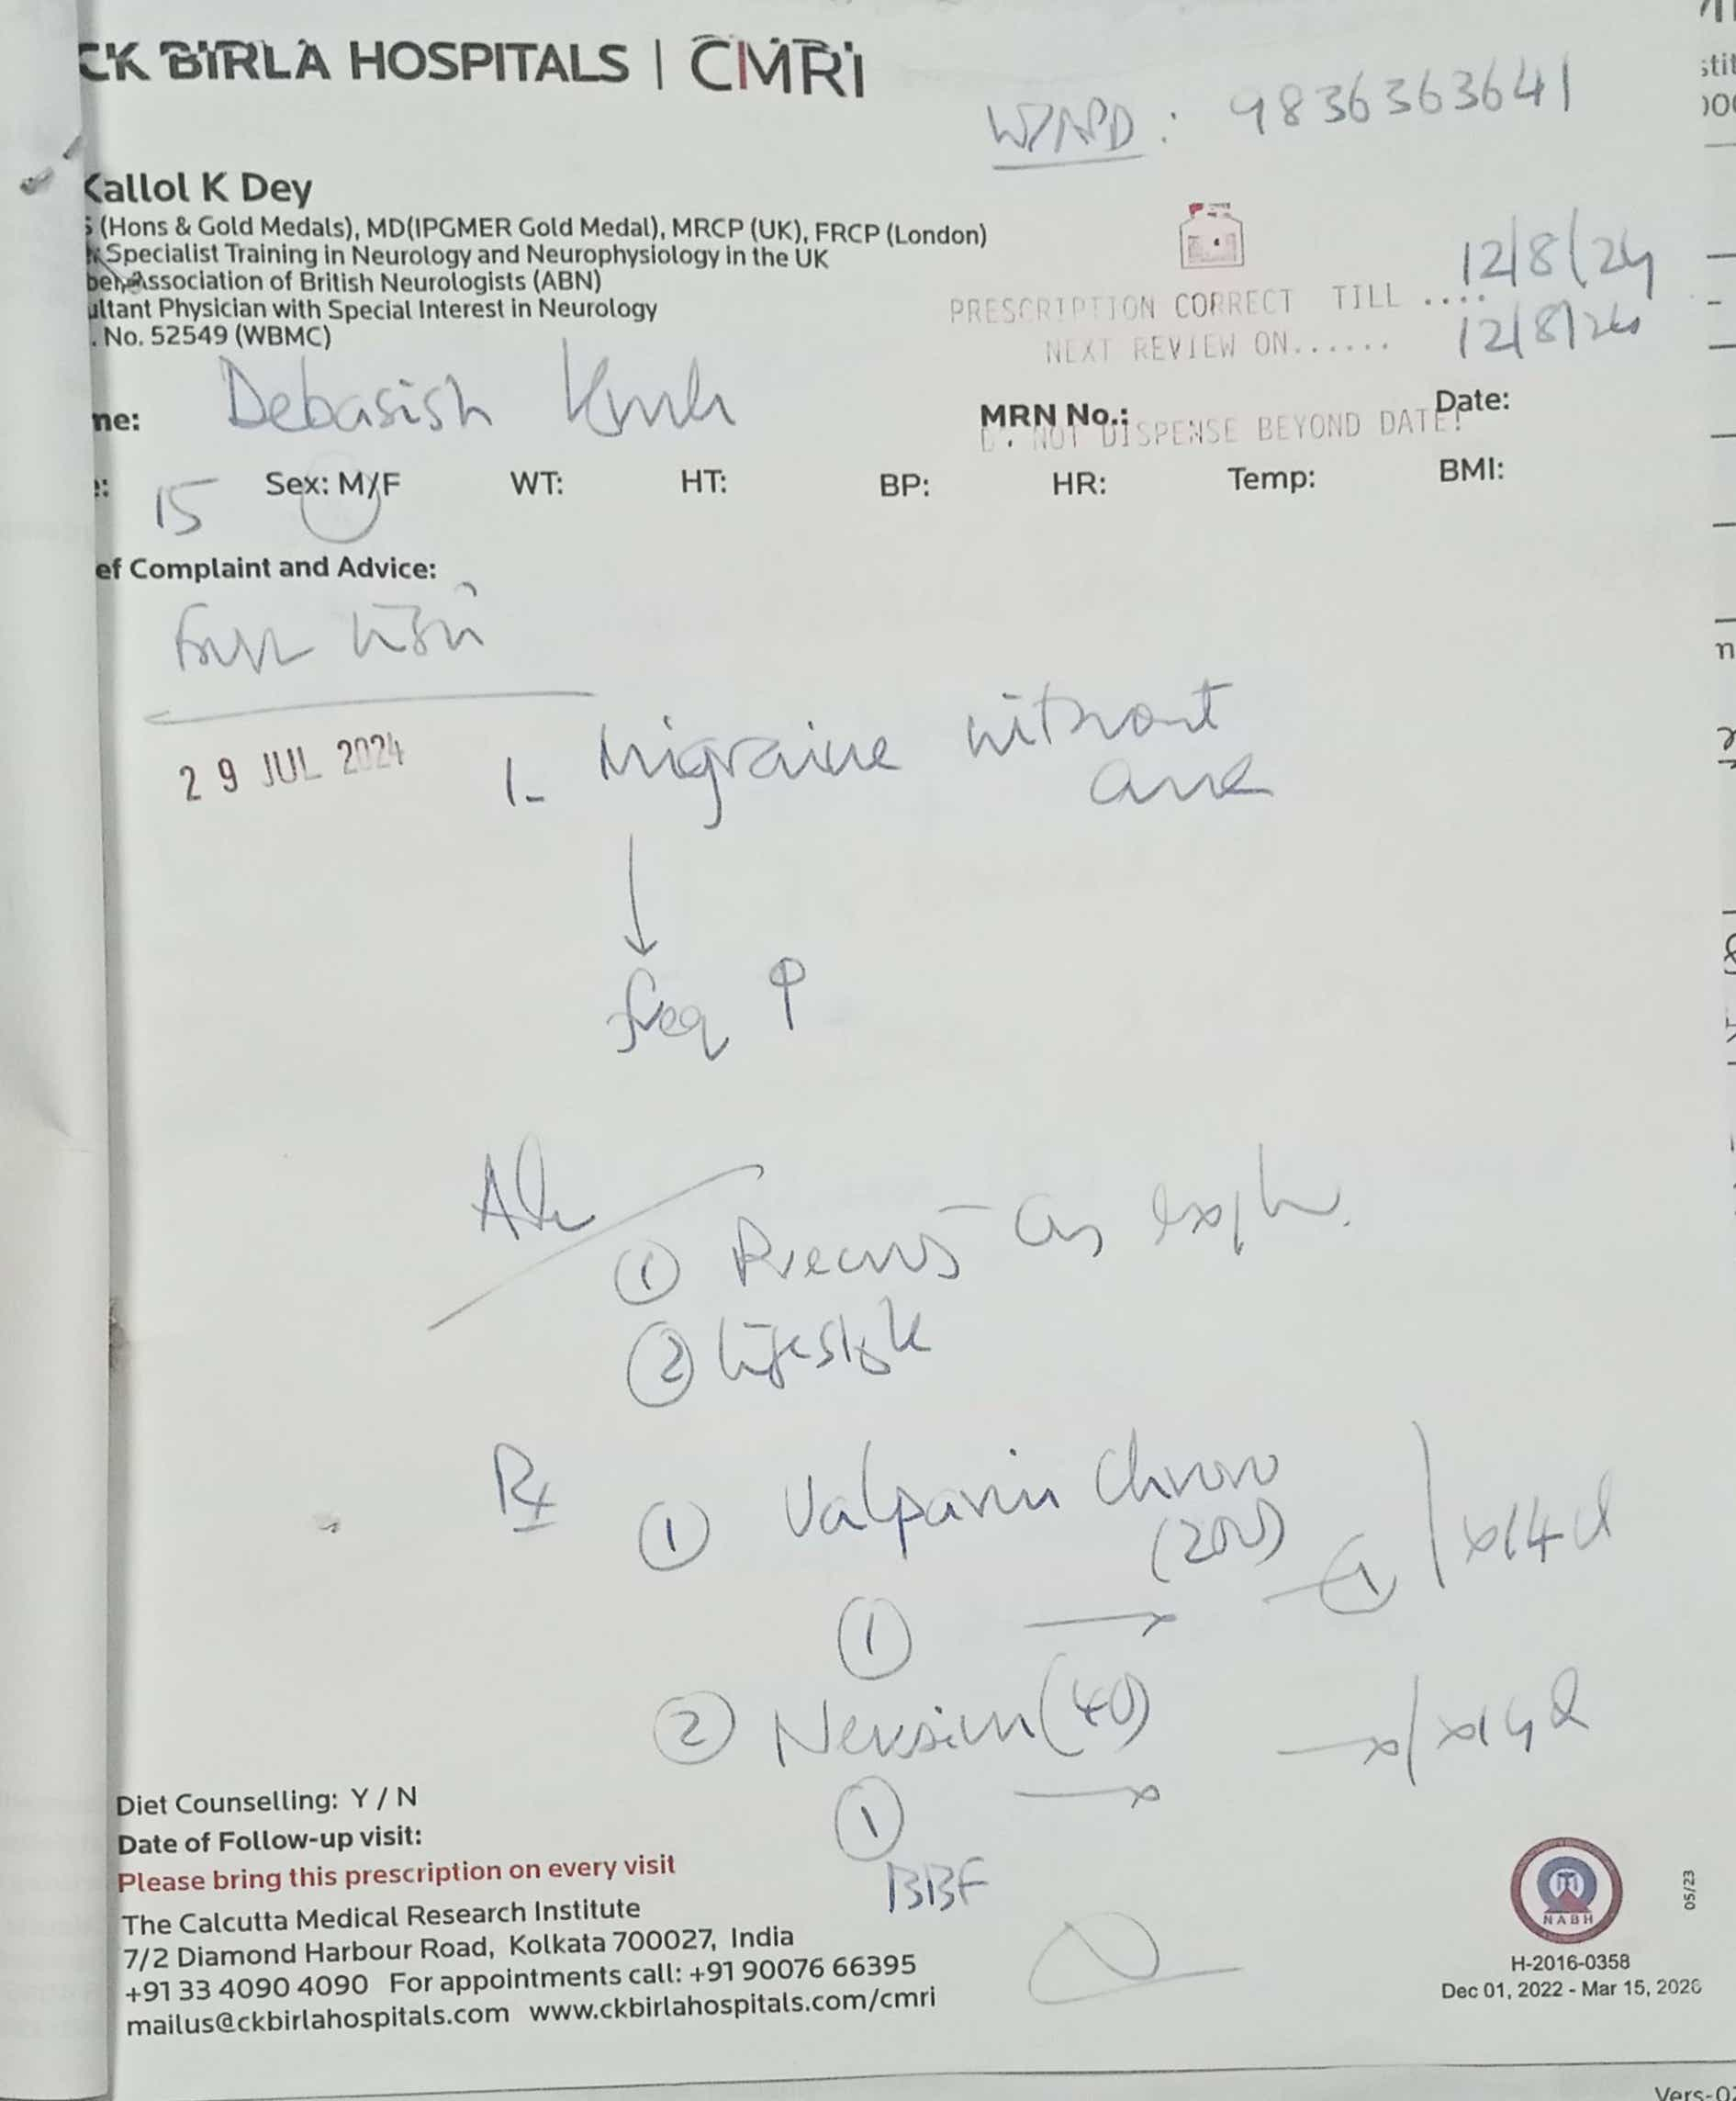 CK BIRLA HOSPITALS | CMRI
W/APD : 9836363641
Kallol K Dey
(Hons & Gold Medals), MD(IPGMER Gold Medal), MRCP (UK), FRCP (London)
Specialist Training in Neurology and Neurophysiology in the UK
Association of British Neurologists (ABN)
ultant Physician with Special Interest in Neurology
. No. 52549 (WBMC)
PRESCRIPTION CORRECT TILL .... 12/8/24
NEXT REVIEW ON...... 12/8/24
me: Debasish
MRN No.: Date:
NOT DISPENSE BEYOND DATE!
e: 15 Sex: M/F WT: HT: BP: HR: Temp: BMI:
ef Complaint and Advice:
29 JUL 2024
1- Migraine without
aura
↓
freq ↑
① as
② Lifestyle
Rx
① Valparin Chrono
(200)
① → ① | x14d
② (40)
① → x → x | x14d
BBF
Diet Counselling: Y / N
Date of Follow-up visit:
Please bring this prescription on every visit
The Calcutta Medical Research Institute
7/2 Diamond Harbour Road, Kolkata 700027, India
+91 33 4090 4090 For appointments call: +91 90076 66395
mailus@ckbirlahospitals.com www.ckbirlahospitals.com/cmri
NABH
H-2016-0358
Dec 01, 2022 - Mar 15, 2026
05/23